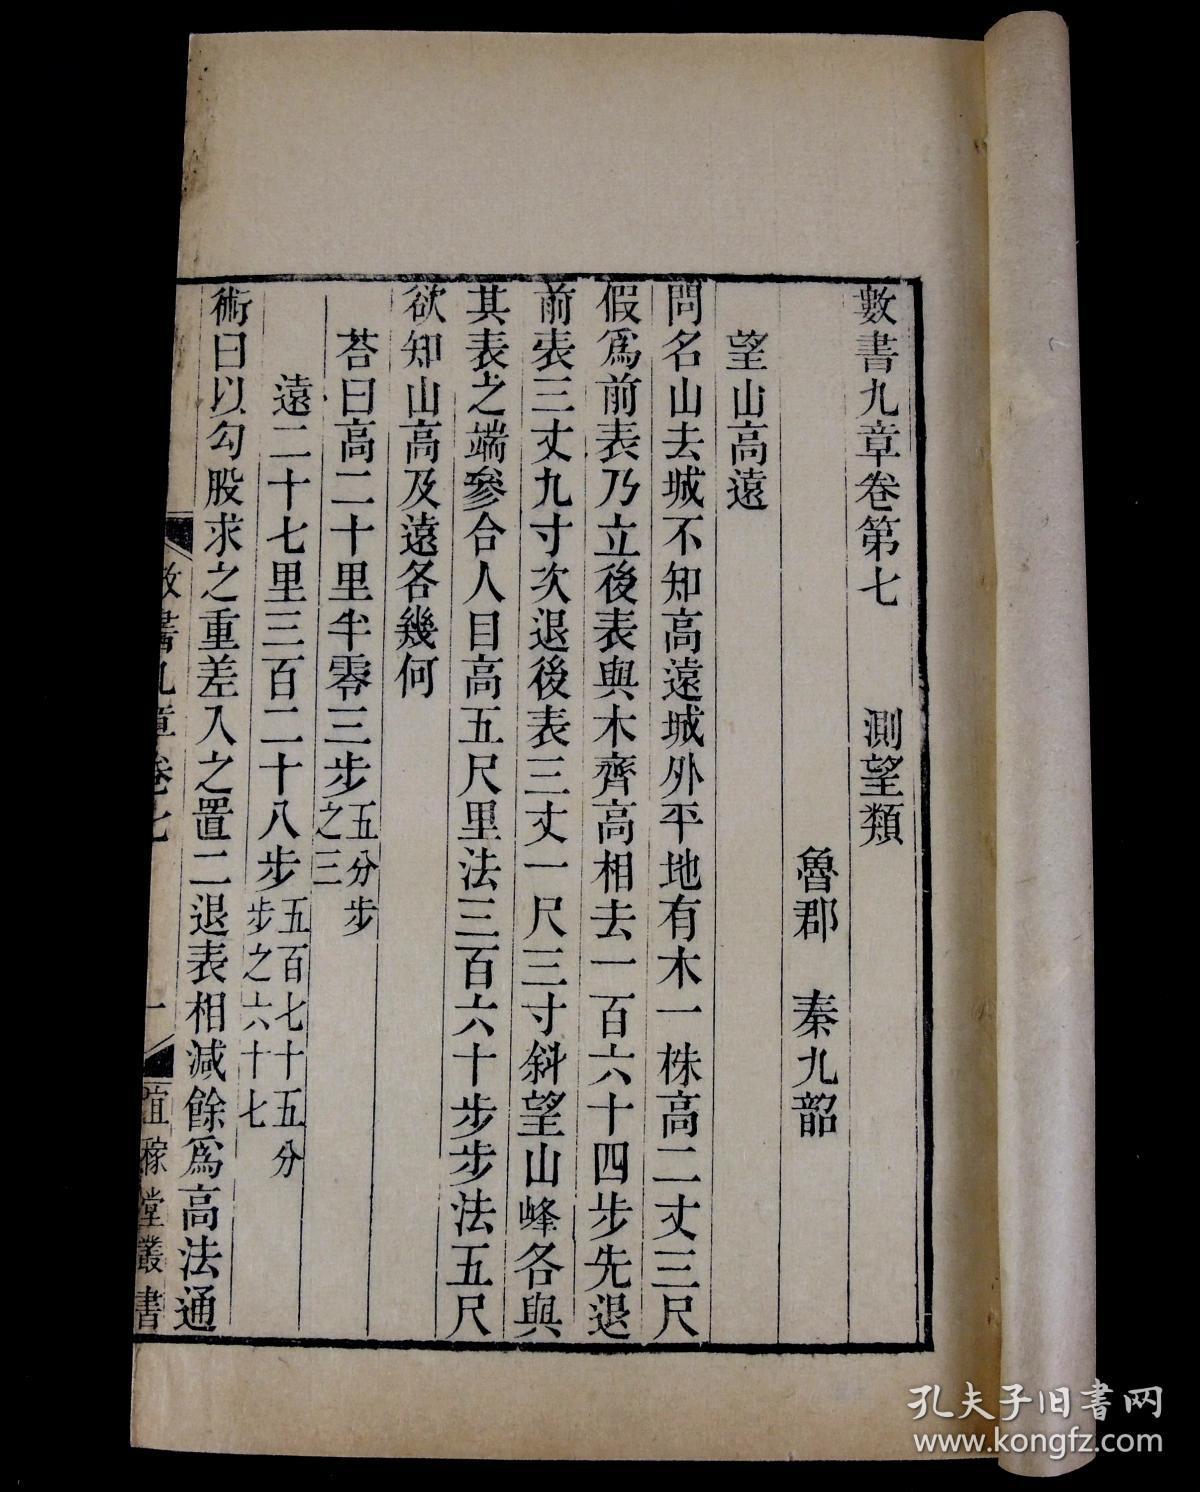 數書九章卷第七　測望類
魯郡　秦九韶
望山高遠
問名山去城不知高遠城外平地有木一株高二丈三尺
假爲前表乃立後表與木齊高相去一百六十四步先退
前表三丈九寸次退後表三丈一尺三寸斜望山峰各與
其表之端參合人目高五尺里法三百六十步步法五尺
欲知山高及遠各幾何
荅曰高二十里半零三步五分步之三
遠二十七里三百二十八步五百七十五分步之六十七
術曰以勾股求之重差入之置二退表相減餘爲高法通
數書九章卷七　一　宜稼堂叢書
孔夫子旧书网
www.kongfz.com